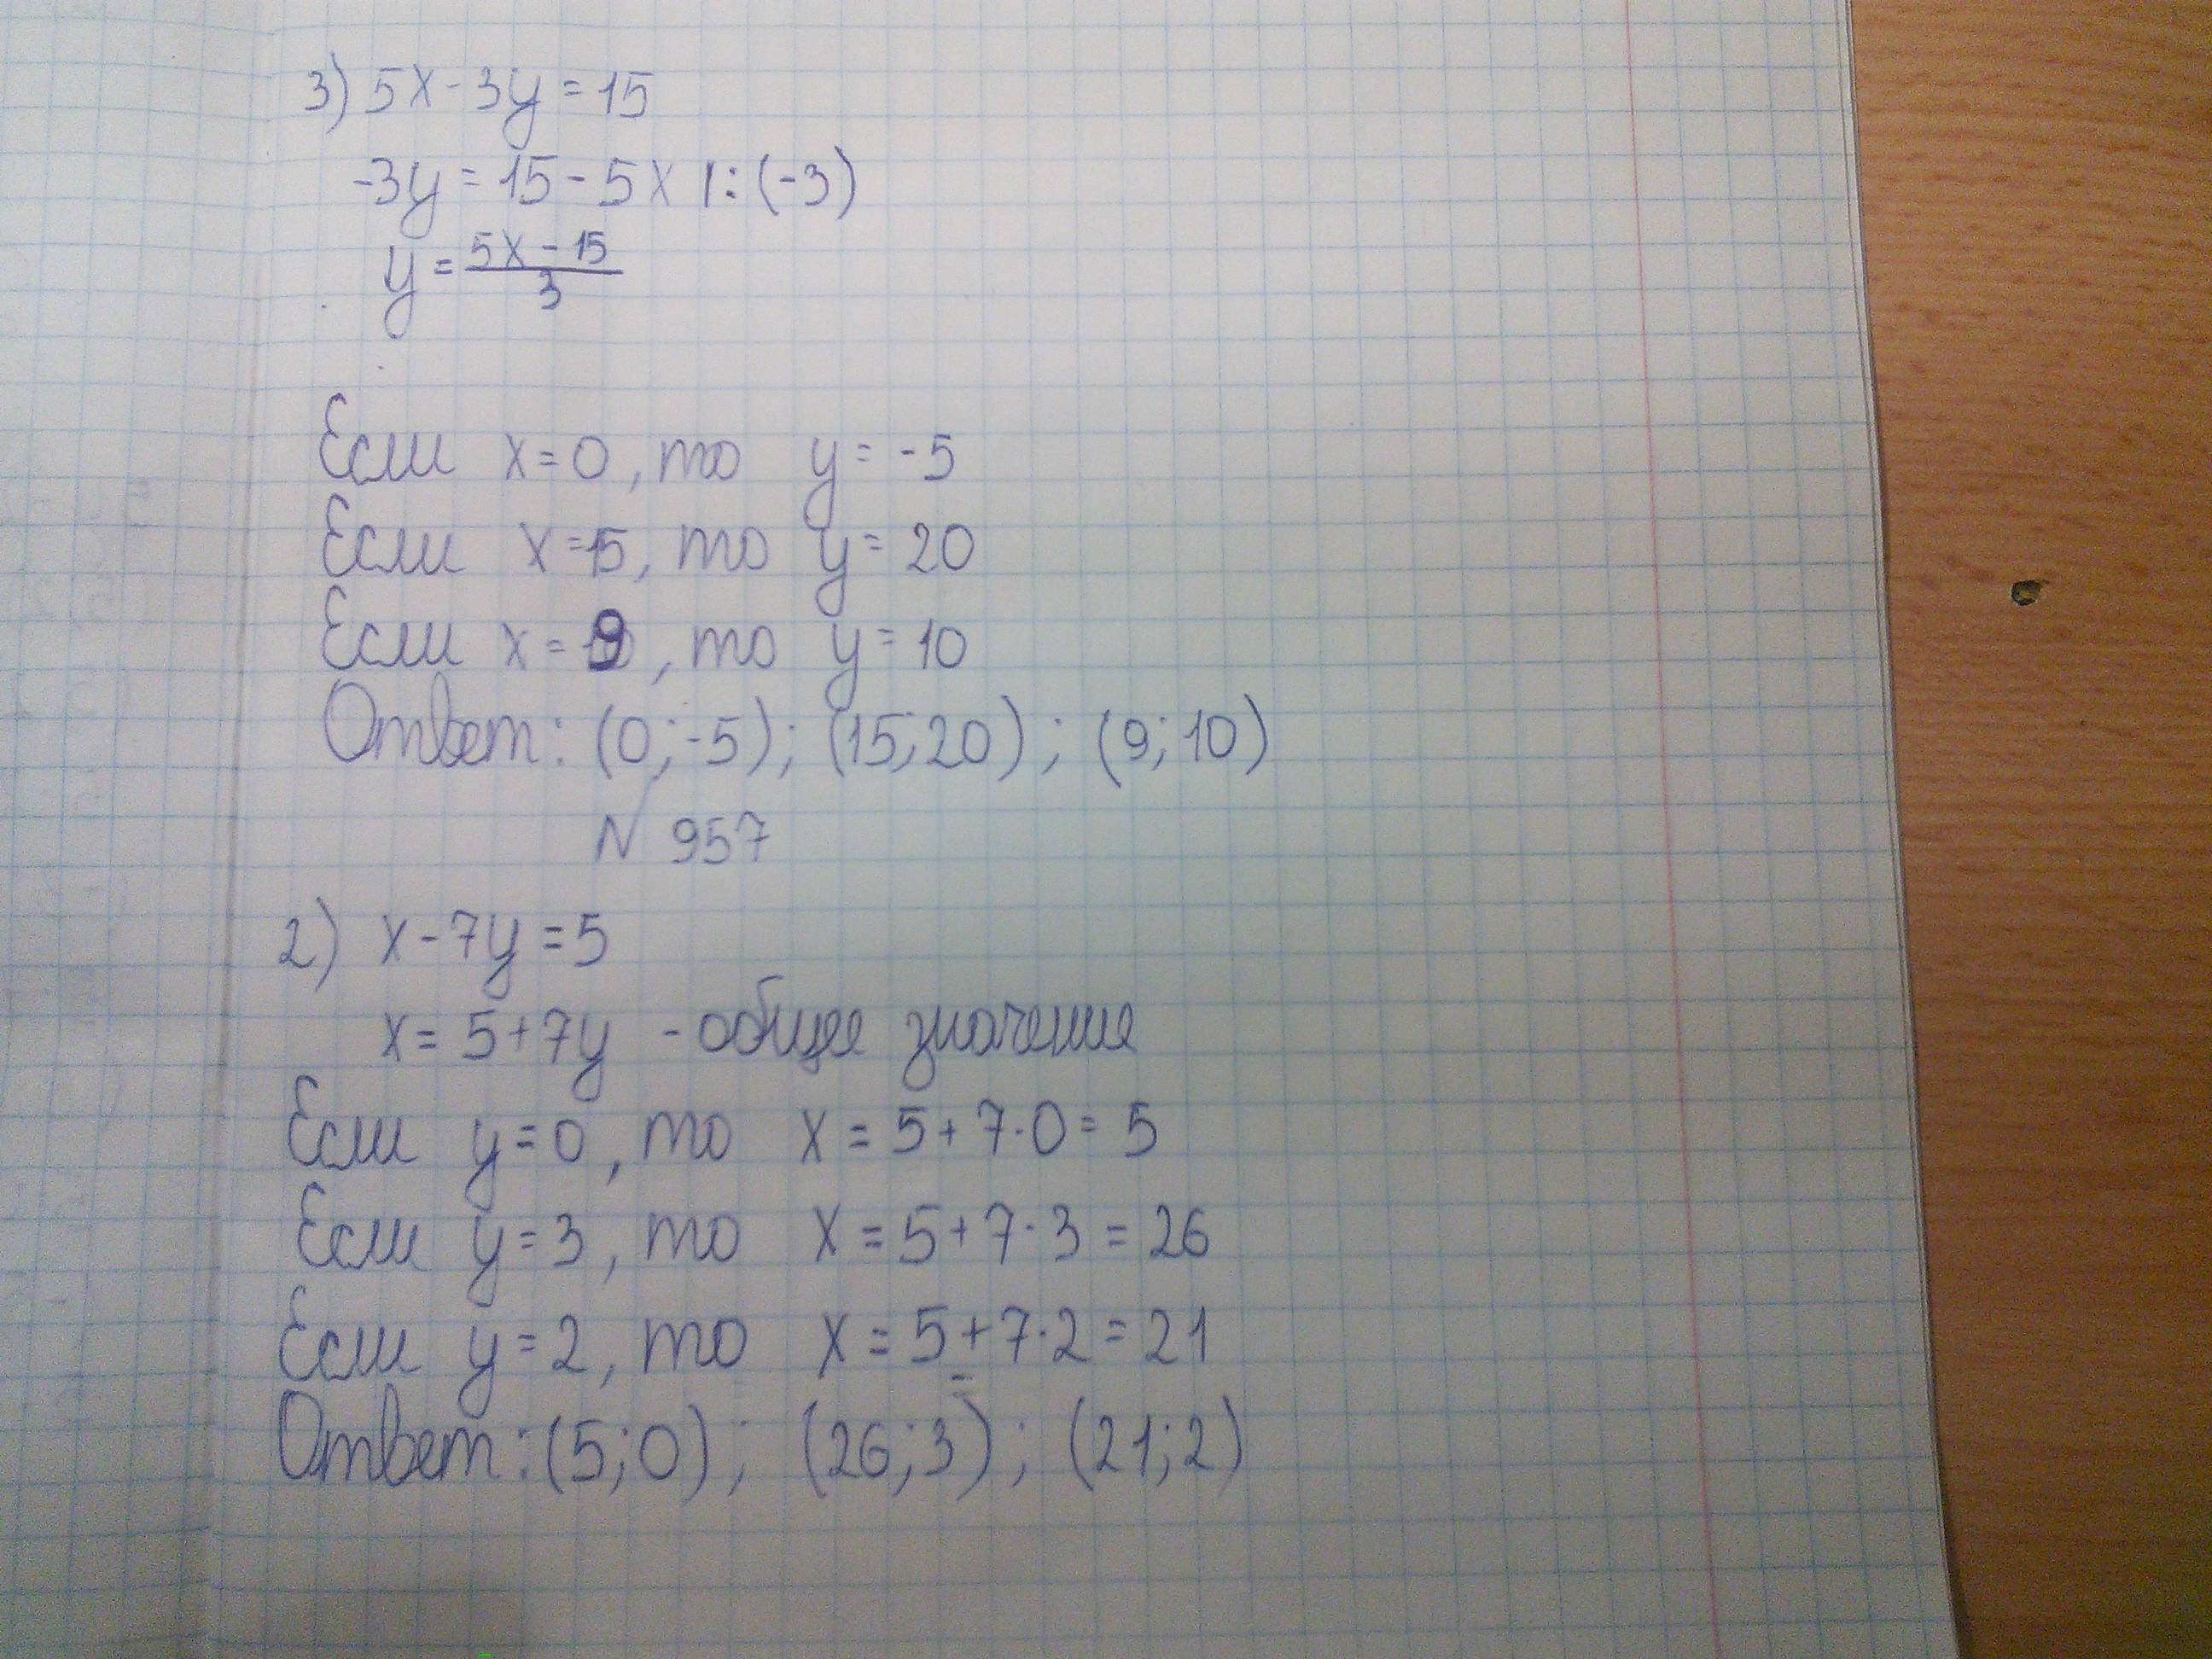 3) 5x - 3y = 15
-3y = 15 - 5x |: (-3)
y = \frac{5x - 15}{3}
Если x = 0, то y = -5
Если x = 15, то y = 20
Если x = 9, то y = 10
Ответ: (0; -5); (15; 20); (9; 10)
N 957
2) x - 7y = 5
x = 5 + 7y - общее значение
Если y = 0, то x = 5 + 7·0 = 5
Если y = 3, то x = 5 + 7·3 = 26
Если y = 2, то x = 5 + 7·2 = 21
Ответ: (5; 0); (26; 3); (21; 2)